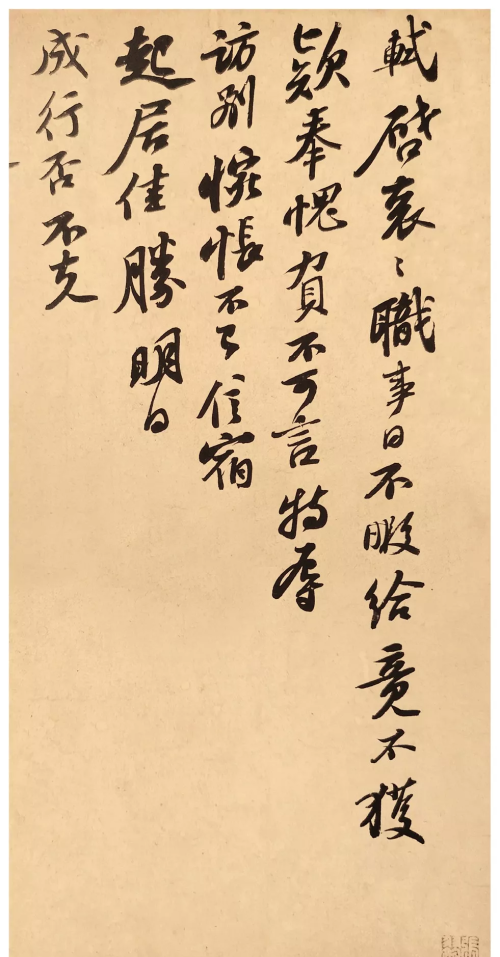 軾啓衮〻職事日不暇給竟不獲
欵奉愧負不可言特辱
訪別惋悵不已信宿
起居佳勝明日
成行否不克